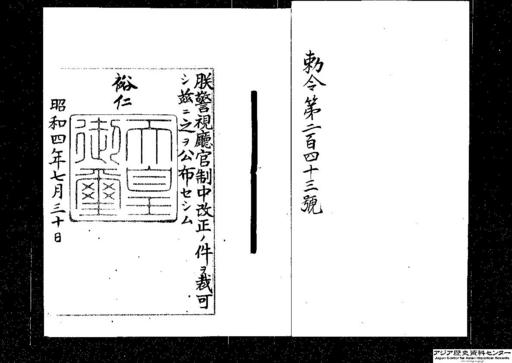 勅令第二百四十三號
朕警視廳官制中改正ノ件ヲ裁可
シ玆ニ之ヲ公布セシム
裕仁
天皇
御璽
昭和四年七月三十日
アジア歴史資料センター
Japan Center for Asian Historical Records